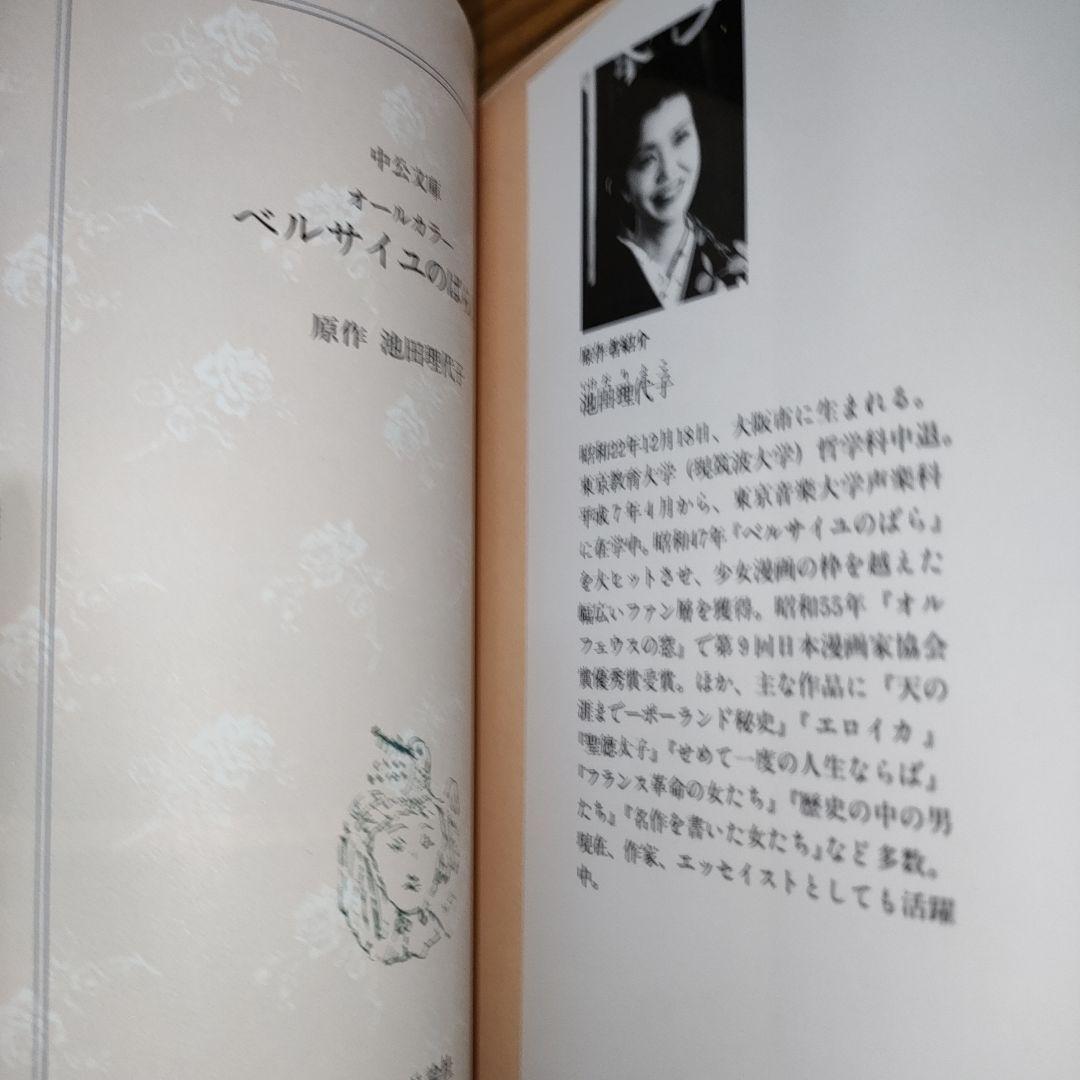 中公文庫
オールカラー
ベルサイユのばら
原作 池田理代子
原作者紹介
いけだりよこ
池田理代子
昭和22年12月18日、大阪市に生まれる。
東京教育大学（現筑波大学）哲学科中退。
平成7年4月から、東京音楽大学声楽科
に在学中。昭和47年『ベルサイユのばら』
を大ヒットさせ、少女漫画の枠を越えた
幅広いファン層を獲得。昭和55年『オル
フェウスの窓』で第9回日本漫画家協会
賞優秀賞受賞。ほか、主な作品に『天の
涯までーポーランド秘史』『エロイカ』
『聖徳太子』『せめて一度の人生ならば』
『フランス革命の女たち』『歴史の中の男
たち』『名作を書いた女たち』など多数。
現在、作家、エッセイストとしても活躍
中。